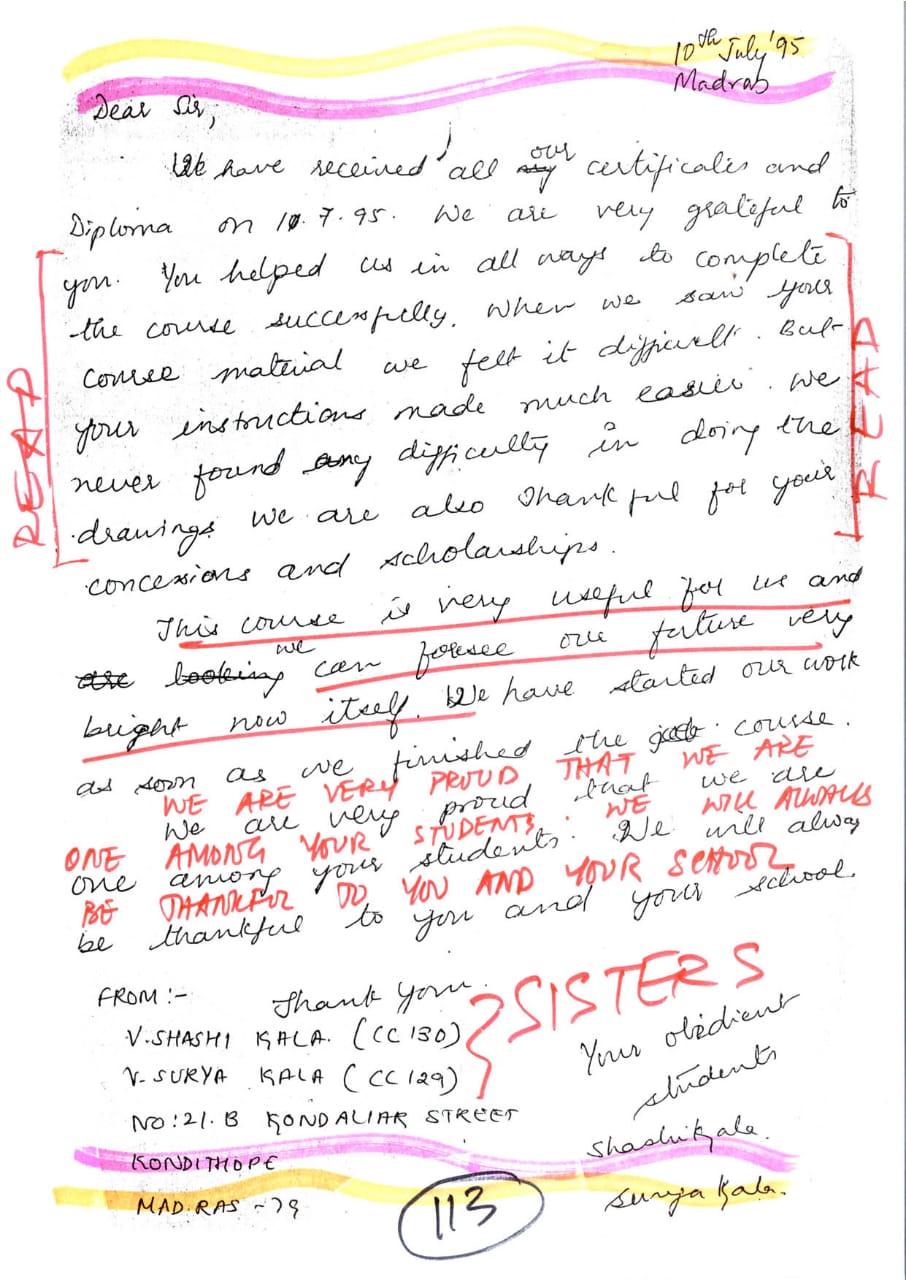 10th July '95
Madras
Dear Sir,
We have received all our certificates and
Diploma on 10.7.95. We are very grateful to
you. You helped us in all ways to complete
the course successfully. When we saw your
course material we felt it difficult. But
your instructions made much easier. We
never found any difficulty in doing the
drawings. We are also thankful for your
concessions and scholarships.
READ
READ
This course is very useful for us and
are looking we can foresee our furture very
bright now itself. We have started our work
as soon as we finished the course.
WE ARE VERY PROUD THAT WE ARE
We are very proud that we are
ONE AMONG YOUR STUDENTS. WE WILL ALWAYS
one among your students. We will alway
BE THANKFUL TO YOU AND YOUR SCHOOL
be thankful to you and your school.
FROM :- Thank You.
V. SHASHI KALA. (CC 130)
V. SURYA KALA (CC 129)
SISTERS
NO: 21. B KONDALIAR STREET
KONDITHOPE
MADRAS - 79
Your obidient
students
Shashikala.
Surya Kala.
113